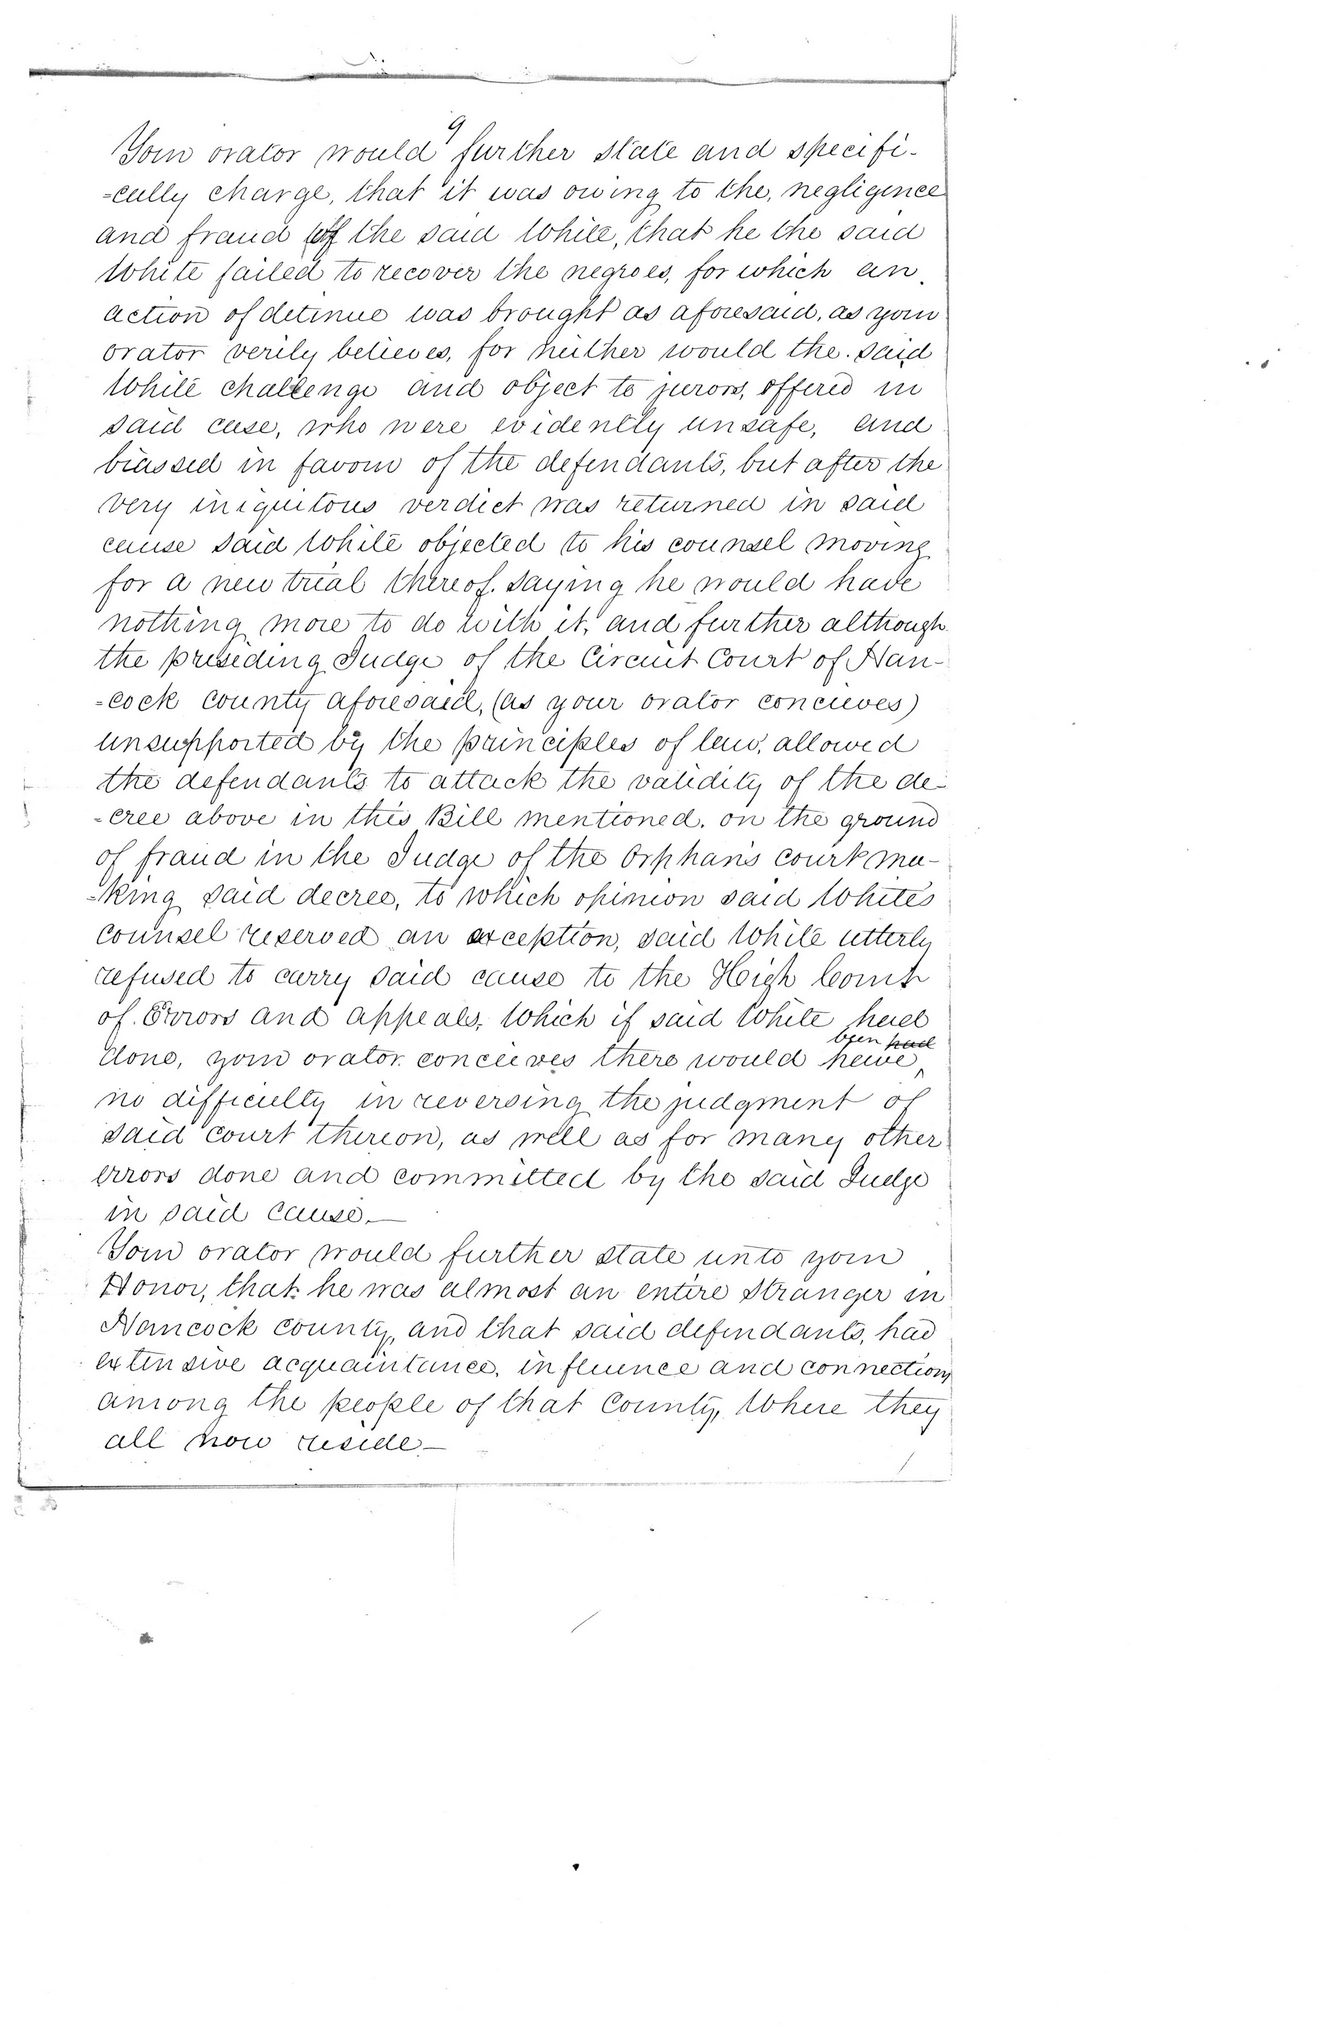 9
Your orator would further state and specifi-
-cally charge, that it was owing to the, negligence
and fraud of the said White, that he the said
White failed to recover the negroes, for which an
action of detinue was brought as aforesaid, as your
orator verily believes, for neither would the said
White challenge and object to jurors, offered in
said case, who were evidently unsafe, and
biassed in favour of the defendants, but after the
very iniquitous verdict was returned in said
cause said White objected to his counsel moving
for a new trial thereof. saying he would have
nothing more to do with it, and further although
the presiding Judge of the Circuit Court of Han-
-cock county aforesaid, (as your orator concieves)
unsupported by the principles of law, allowed
the defendants to attack the validity of the de-
-cree above in this Bill mentioned. on the ground
of fraud in the Judge of the Orphans court ma-
-king said decree, to which opinion said White's
counsel reserved an exception, said White utterly
refused to carry said cause to the High Court
of Errors and appeals, which if said White had
done, your orator conceives there would have
been had
no difficulty in reversing the judgment of
said court thereon, as well as for many other
errors done and committed by the said Judge
in said cause.—
Your orator would further state unto your
Honor, that he was almost an entire stranger in
Hancock county, and that said defendants, had
extensive acquaintance, influence and connections
among the people of that County, where they
all now reside—